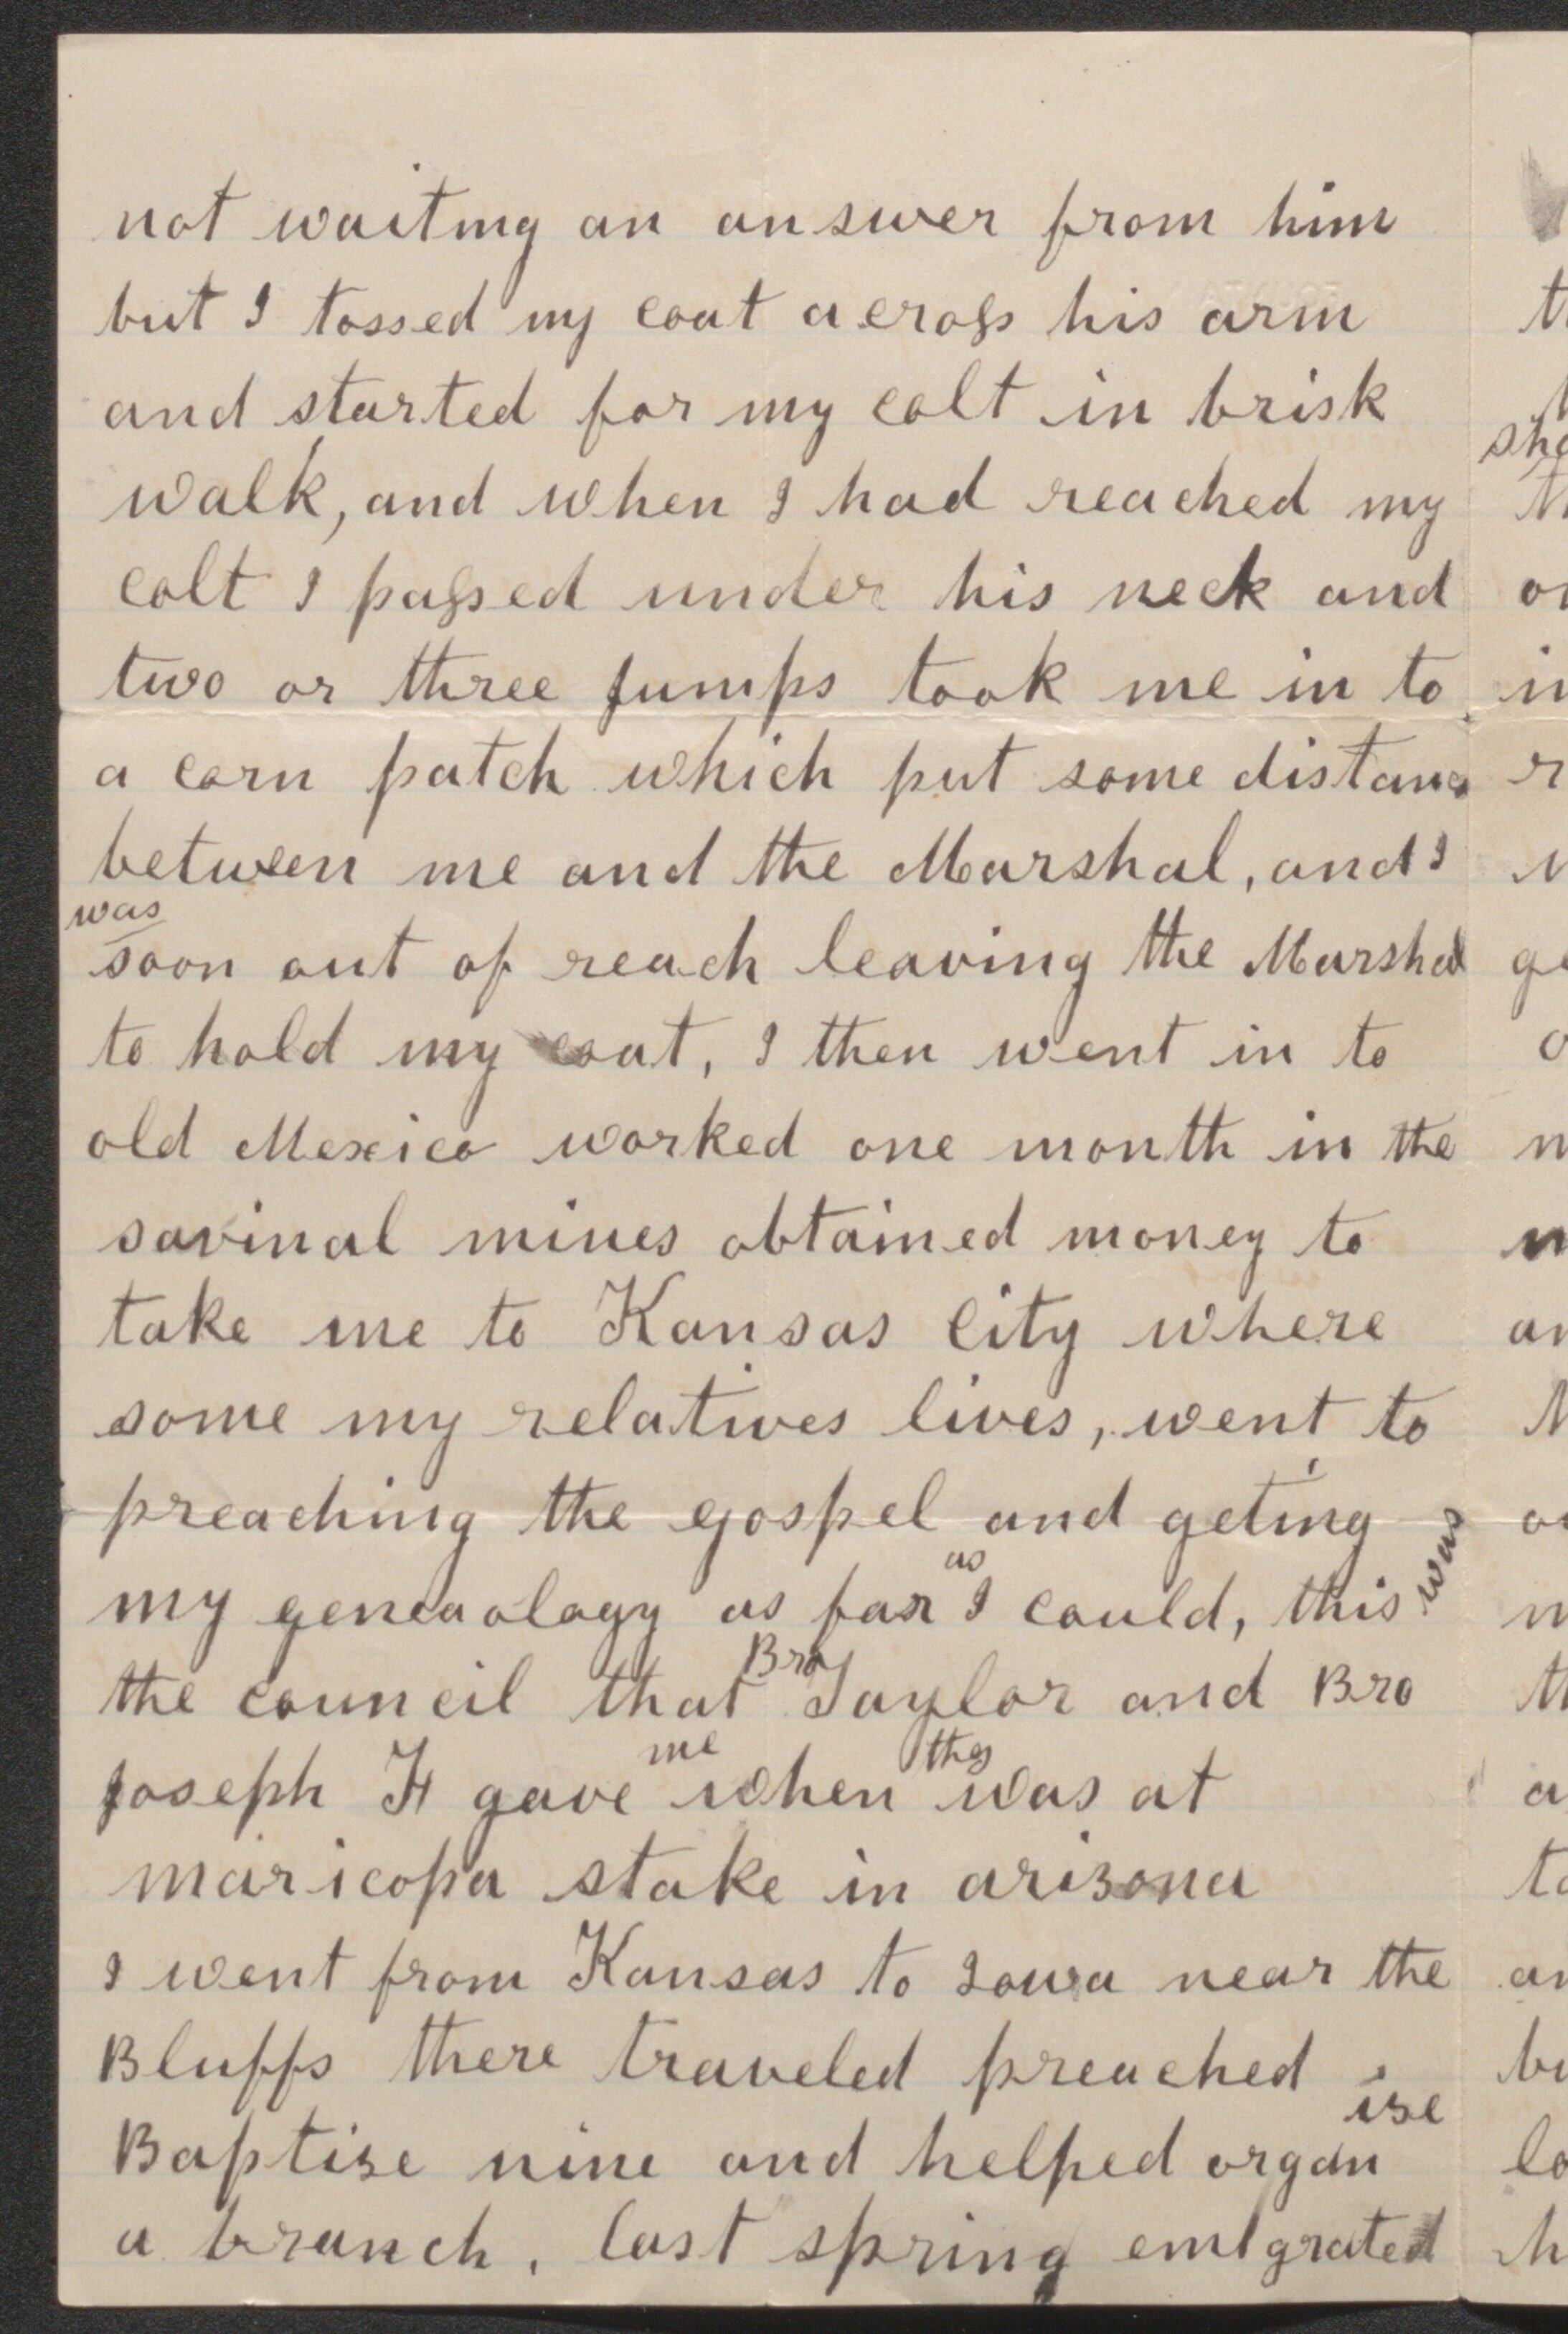 not waiting an answer from him
but I tossed my coat across his arm
and started for my colt in brisk
walk, and when I had reached my
colt I passed under his neck and
two or three jumps took me in to
a corn patch which put some distanc
between me and the Marshal, and I
was
soon out of reach leaving the Marshal
to hold my coat, I then went in to
old Mexico worked one month in the
savinal mines obtained money to
take me to Kansas City where
some my relatives lives, went to
preaching the gospel and geting
my geneaology as far as I could, this was
the council that Bro Taylor and Bro
Joseph F gave me when they was at
maricopa stake in arizona
I went from Kansas to Iowa near the
Bluffs there traveled preached
Baptise nine and helped organise
a branch, last spring emigrated